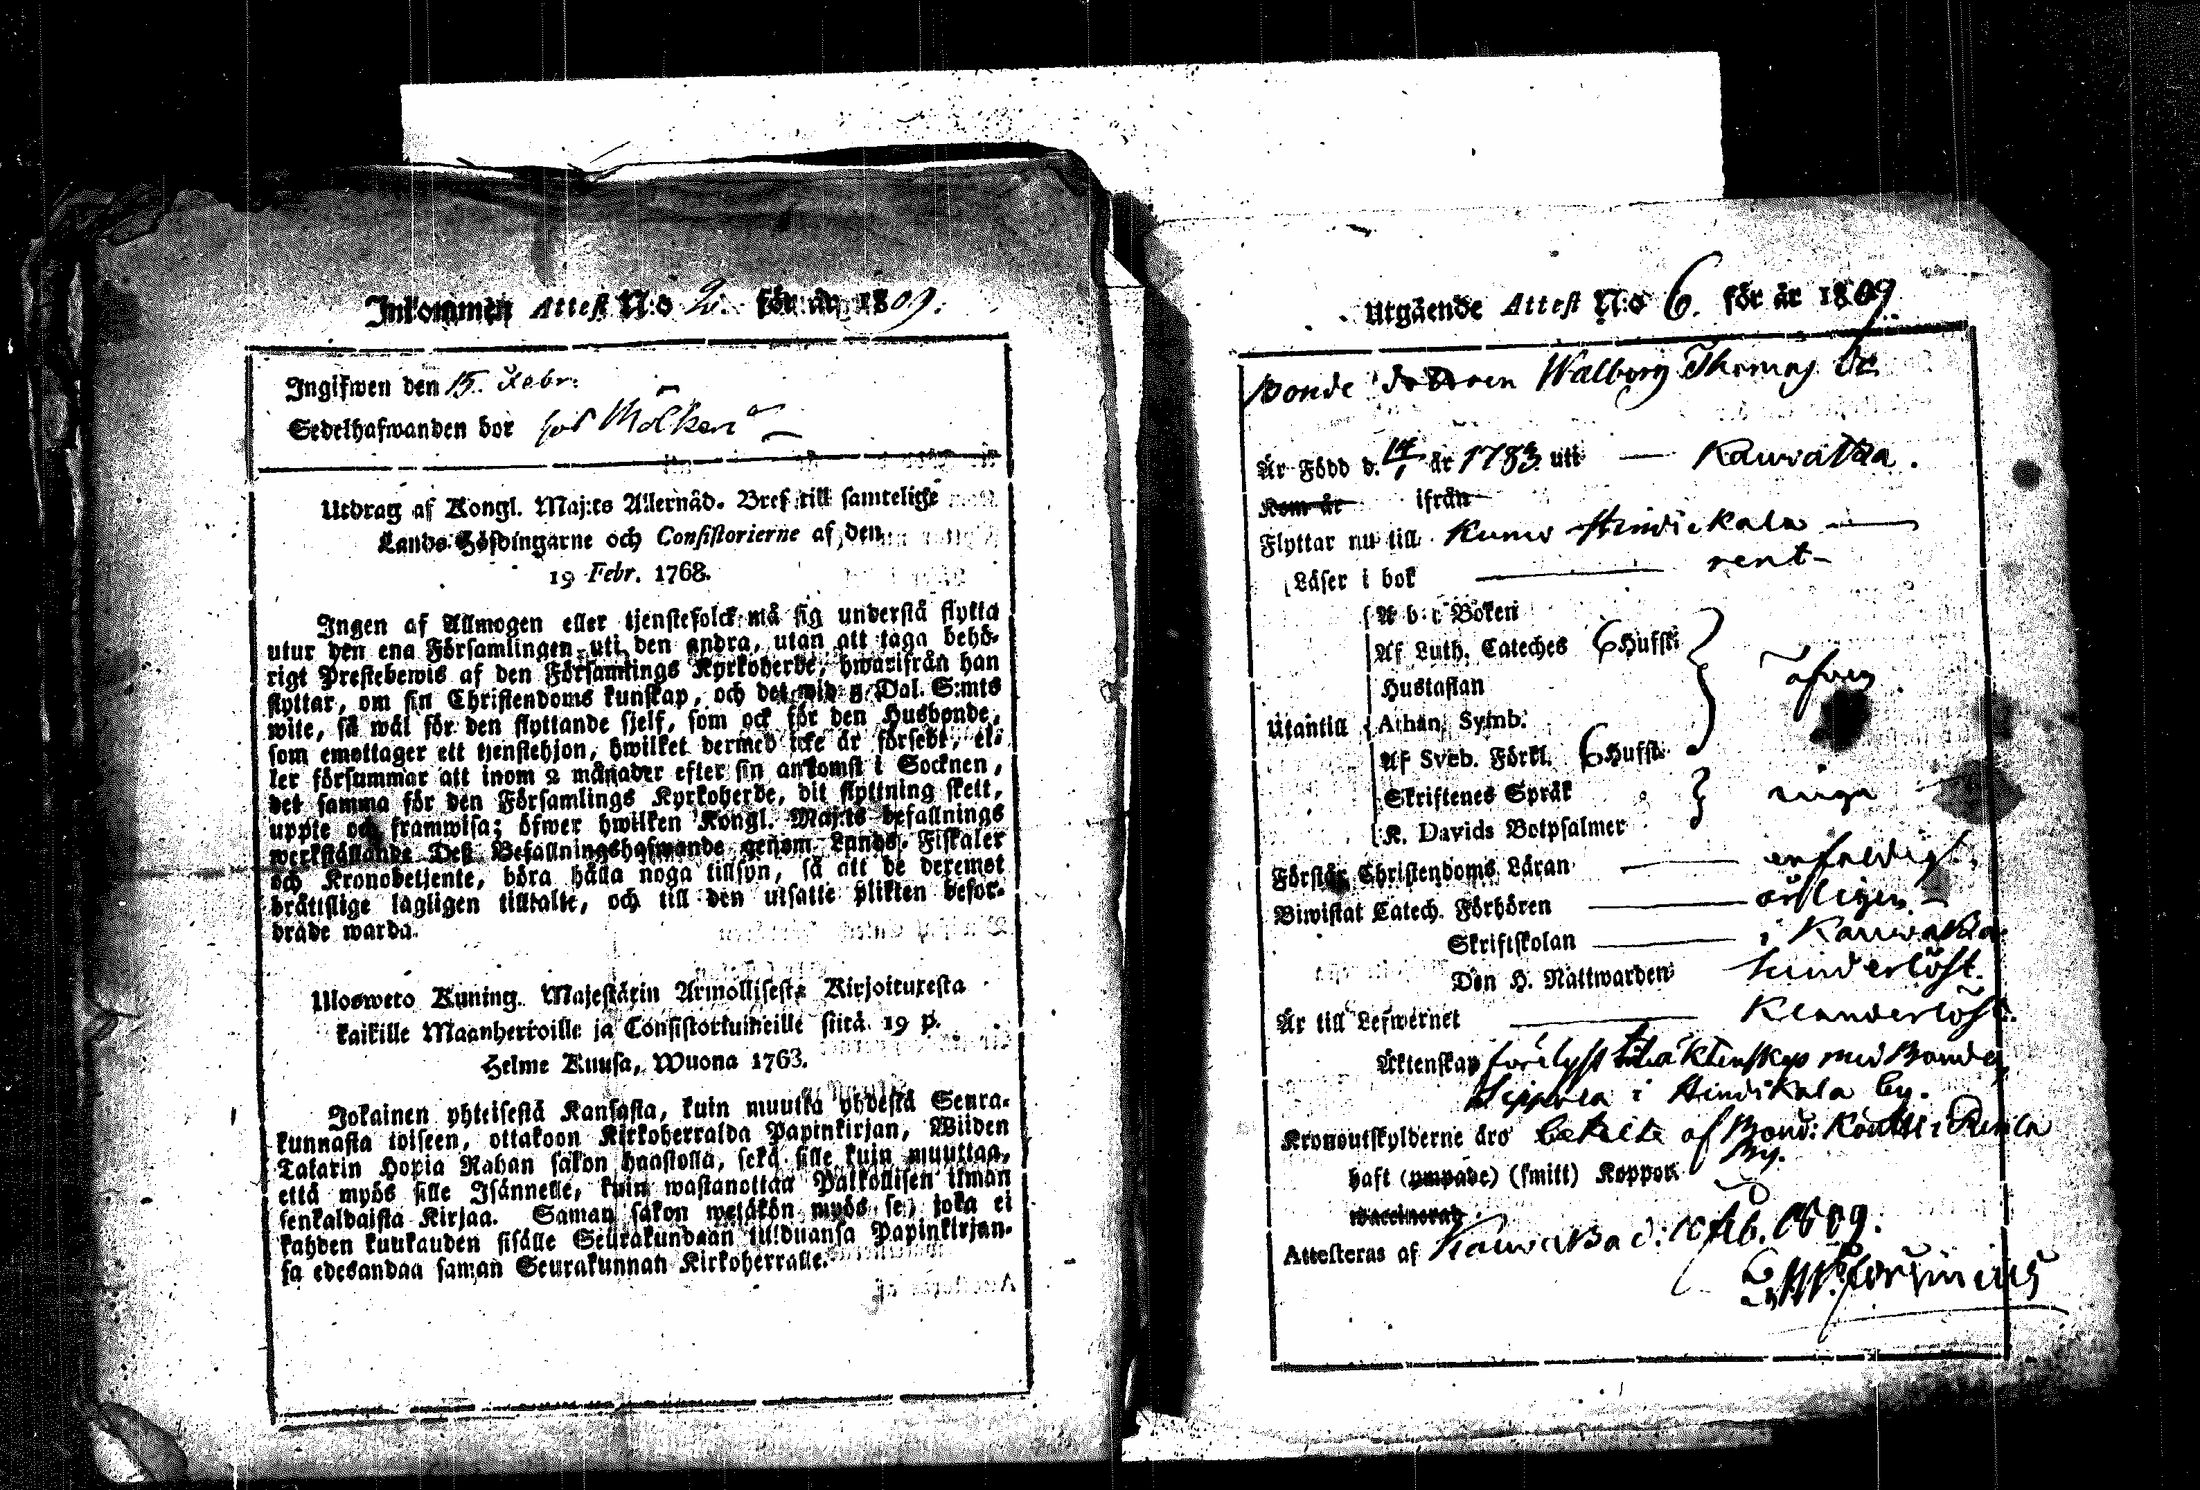 Inkommen Attest N:o 2. för år 1809.
Ingifwen den 15. Febr:
Sedelhafwanden bor hos
Utdrag af Kongl. Maj:ts Allernåd. Bref till samtelige
Lands-Höfdingarne och Consistorierne af den
19 Febr. 1768.
Ingen af Allmogen eller tjenstefolck må sig understå flytta
utur den ena Församlingen uti den andra, utan att taga behö-
rigt Prestebewis af den Församlings Kyrkoherde, hwarifrån han
flyttar, om sin Christendoms kunskap, och det wid 5 Dal. S:mts
wite, så wäl för den flyttande sjelf, som ock för den Husbonde,
som emottager ett tjenstehjon, hwilket dermed icke är försedt, el-
ler försummar att inom 2 månader efter sin ankomst i Socknen,
det samma för den Församlings Kyrkoherde, dit flyttning skett,
uppte och framwisa; öfwer hwilken Kongl. Maj:ts befallnings
werkställande Deß Befallningshafwande genom Lands-Fiskaler
och Kronobetjente, böra hålla noga tillsyn, så att de deremot
bråttslige lagligen tilltalte, och till den utsatte plikten befor-
drade warda.
Ulosweto Kuning. Majestätin Armollisesta Kirjoituxesta
kaikille Maanherroille ja Consistoriumeille siitä 19 p.
Helme Kuusa, Wuona 1763.
Jokainen yhteisestä Kansasta, kuin muutta yhdestä Seura-
kunnasta toiseen, ottakoon Kirkoherralda Papinkirjan, Wiiden
Talarin Hopia Rahan sakon haastolla, sekä sille kuin muuttaa,
että myös sille Isännelle, kuin wastanottaa Palkollisen ilman
senkaldaista Kirjaa. Saman sakon wetäkön myös se, joka ei
kahden kuukauden sisälle Seurakundaan tulduansa Papinkirjan-
sa edesandaa saman Seurakunnan Kirkoherralle.
Utgående Attest N:o 6. för år 1809
Bonde dottren Walborg Thomas dr.
Är Född d. 14/1 år 1783 uti — Kauvatsa.
Kom år ifrån
Flyttar nu till Kumo Hindickala —
Läser i bok — rent
A b c Boken
Af Luth. Cateches 6 Hufst:
Hustaflan
Utantill Athan. Symb.
Af Sveb. Förkl. 6 Hufst.
Skriftenes Språk
K. Davids Botpsalmer
äfven
inga
Förstår Christendoms Läran — enfaldigt.
Biwistat Catech. Förhören — årligen.
Skriftskolan — i Kauwatsa
Den H. Nattwarden hinderlöst.
Är till Lefwernet — Klanderlös.
Äktenskap förelyst till äktenskap med Bonden
i Hindikala by.
Kronoutskylderne äro betalte af Bond: i
By.
haft (ympade) (smitt) Koppor
vaccinerad
Attesteras af Kauwatsa d: 10 Feb. 1809.